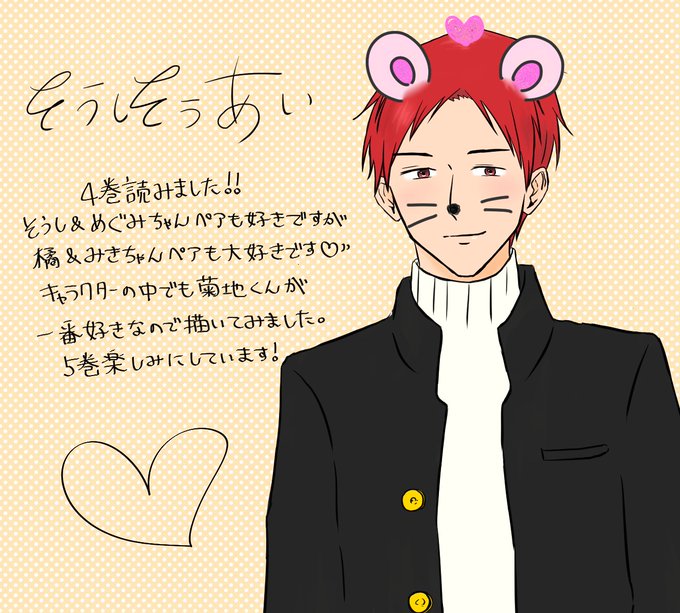 そうしそうあい
4巻読みました!!
そうし&めぐみちゃんペアも好きですが
橘&みきちゃんペアも大好きです♡"
キャラクターの中でも菊地くんが
一番好きなので描いてみました。
5巻楽しみにしています!